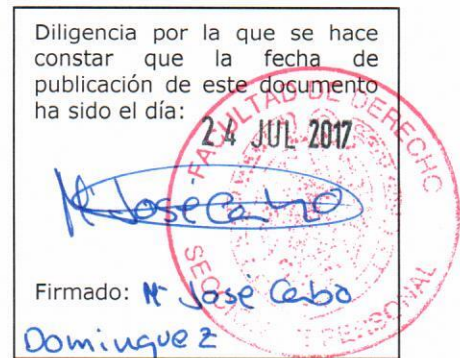 Diligencia por la que se hace
constar que la fecha de
publicación de este documento
ha sido el día:
24 JUL 2017
FACULTAD DE DERECHO
Mª José Cabo
Firmado: Mª José Cabo
Dominguez
PERSONAL